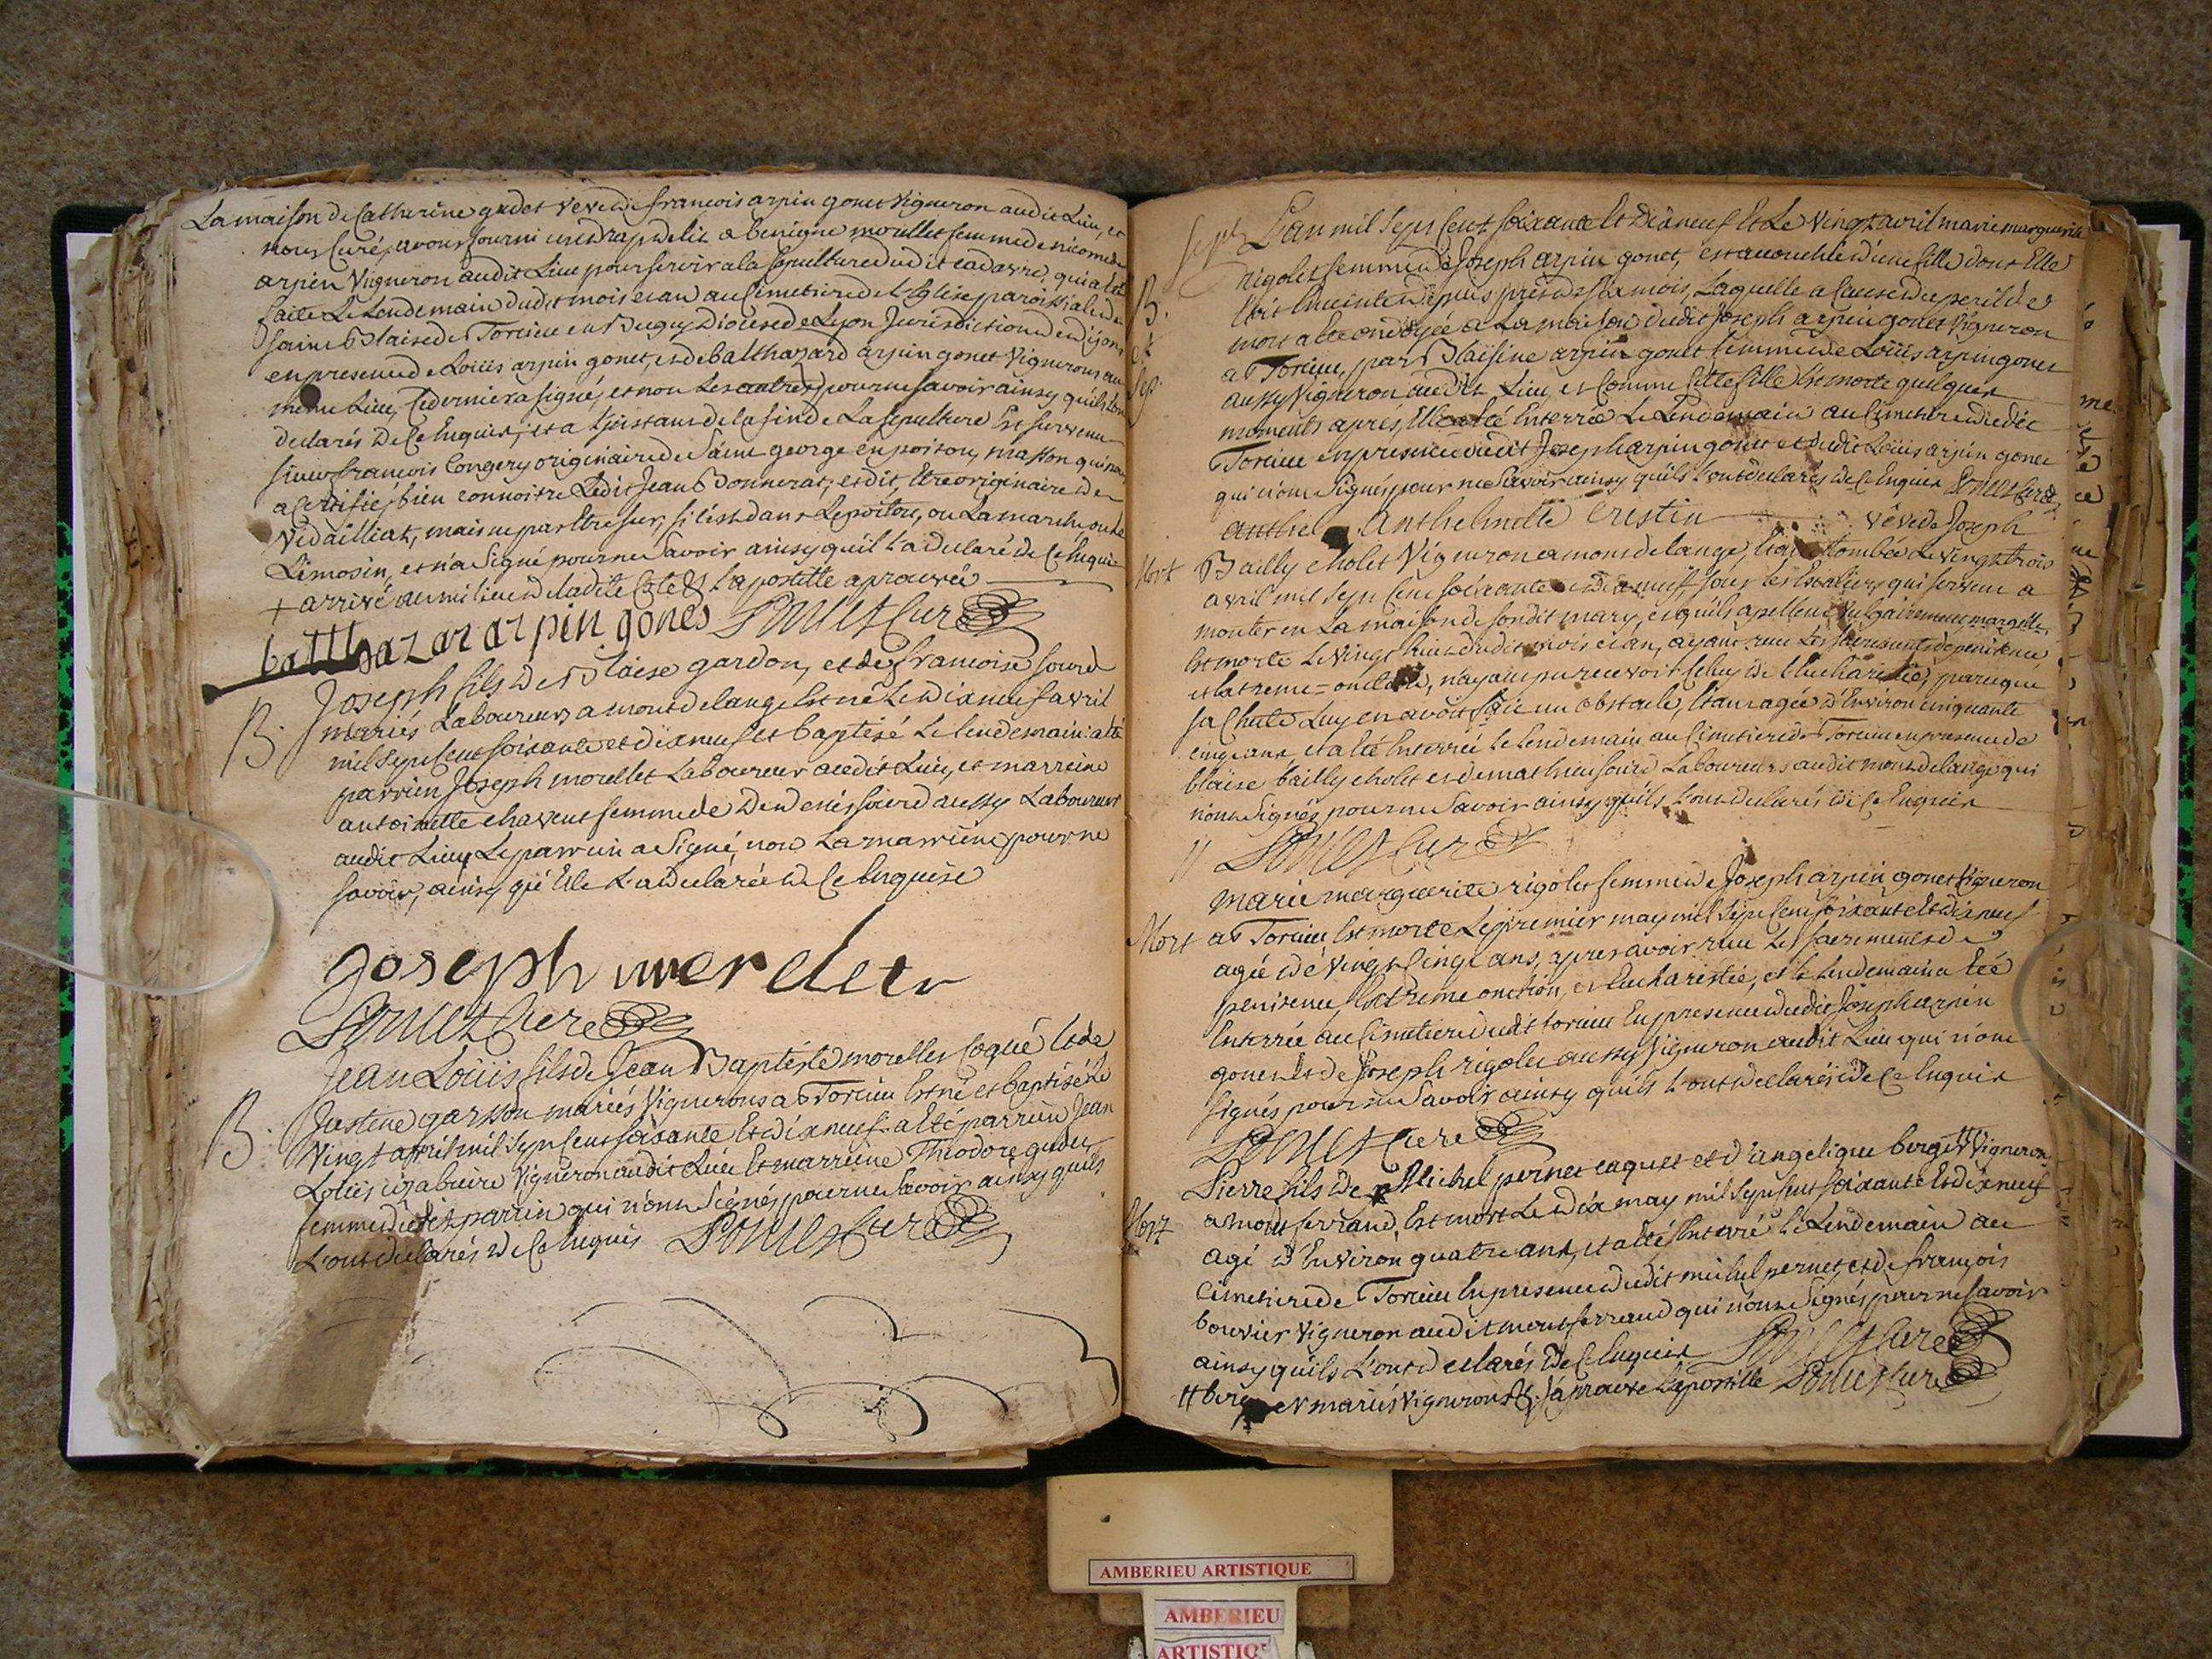 La maison de Catherine gudet veve de francois arpin gonet vigneron audit Lieu, et
nous Curé, avons fourni un drap de lit a benigne morellet femme de nicomede
arpin vigneron audit Lieu pour servir a la sepulture dudit cadavre, qui a été
faite Le Lendemain dudit mois et an au Cimetiere de L'Eglise paroissiale de
saint Blaise de Torcieu en Bugey Diocese de Lyon Jurisdiction de dijon,
en presence de Loüis arpin gonet, et de balthazard arpin gonet vignerons au
meme Lieu, Ce dernier a signé, et non Les autres pour ne savoir ainsy qu'ils L'ont
declarés de Ce Enquis, et a L'instant de la fin de La sepulture Est survenu
sieur francois Congery originaire de saint george en poitou, masson qui nous
a Certifié bien connoitre Ledit Jean Bonnerat, et dit, Etre originaire de
Vedailliat, mais ne pas Etre sur, si C'est dans Le poitou, ou La marche ou Le
Limosin, et n'a Signé pour ne Savoir ainsy qu'il L'a declaré de Ce Enquis
+ arrivé au milieu de ladite L'apostille aprouvée
balthazar arpin gones Curé
Joseph fils de Blaise gardon, et de francoise sourd
B. mariés Laboureurs a montdelange Est né Le dixneuf avril
mil sept Cent soixante et dixneuf et baptisé Le lendemain: a eté
parrein Joseph morellet Laboureur audit Lieu, et marreine
antoinette chavent femme de denis sourd aussy Laboureur
audit Lieu, Le parrein a Signé, non La marreine pour ne
savoir, ainsy qu'Elle L'a declarée de Ce Enquise
Joseph
Curé
Jean Loüis fils de Jean Baptiste morellet Coqué et de
Justine garsson mariés vignerons a Torcieu Est né et baptisé Le
B. Vingt avril mil Sept Cent soixante Et dixneuf: a Eté parrein Jean
Loüis vigneron audit Lieu Et marreine Theodore gudet
femme dudit parrein qui n'ont Signés pour ne Savoir ainsy qu'ils
L'ont declarés de Ce Enquis Curé
L'an mil Sept Cent Soixante Et Dixneuf Et Le vingt avril marie marguerite
rigolet femme de Joseph arpin gonet, est accouchée d'une fille dont Elle
B. etoit Enceinte depuis près de six mois, Laquelle a Cause du peril de
et mort a été ondoyée a La maison dudit Joseph arpin gonet vigneron
Sep. a Torcieu, par Blaisine arpin gonet femme de Loüis arpin gonet
aussy vigneron audit Lieu, et Comme Cette fille Est morte quelques
moments aprés, Elle a été Enterrée Le Lendemain au Cimetiere dudit
Torcieu en presence dudit Joseph arpin gonet et dudit Loüis arpin gonet
qui n'ont Signés pour ne Savoir ainsy qu'ils L'ont declarés de Ce Enquis Curé
anthel Anthelmette Cristin veve de Joseph
Mort Bailly cholet Vigneron a montdelange, Etant tombée Le vingt trois
avril mil Sept Cent Soixante et dixneuf, sous les Escaliers qui servent a
monter en La maison de sondit mary, et qu'ils apellent vulgairement
Est morte Le vingt huit dudit mois et an, ayant recu Les sacrements de penitence
et extreme=onction, n'ayant pu recevoir Celuy de L'Eucharistie, parceque
sa Chute Luy en avoit fait un obstacle, Etant agée d'Environ cinquante
cinq ans et a été Enterrée le lendemain au Cimetiere de Torcieu en presence de
blaise bailly cholet et de mathieu sourd Laboureurs audit montdelange qui
n'ont Signés pour ne Savoir ainsy qu'ils L'ont declarés de Ce Enquis
Curé
Marie marguerite rigolet femme de Joseph arpin gonet vigneron
Mort a Torcieu Est morte Le premier may mil Sept Cent soixante et dixneuf
agée de vingt Cinq ans, apres avoir recu Les sacrements de
penitence, Extreme onction, et Eucharistie, et le lendemain a Eté
Enterrée au Cimetiere dudit torcieu En presence dudit Joseph arpin
gonet et de Joseph rigolet aussy vigneron audit Lieu qui n'ont
signés pour ne Savoir ainsy qu'ils L'ont declarés de Ce Enquis
Curé
Pierre fils de Michel pernet caquet et d'angelique berget vigneron
Mort a montferrand, Est mort Le dix may mil Sept Cent soixante Et dixneuf
agé d'Environ quatre ans, et a été Enterré le Lendemain au
Cimetiere de Torcieu En presence dudit michel pernet, et de françois
bouvier vigneron audit montferrand qui n'ont Signés pour ne savoir
ainsy qu'ils L'ont declarés de Ce Enquis Curé
mariés vignerons J'aprouve L'apostille Curé
AMBERIEU ARTISTIQUE
AMBERIEU
ARTISTIQ